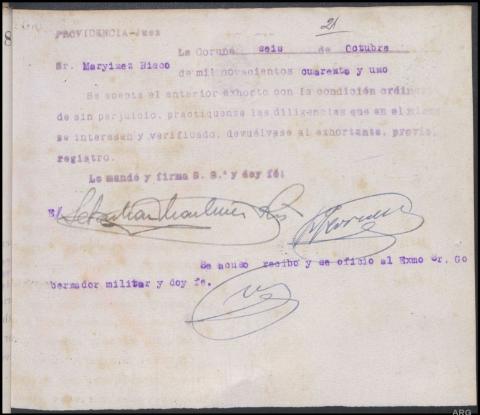 21
8
PROVIDENCIA-Juez
La Coruña seis de Octubre
Sr. Maryimez Risco
de mil novecientos cuarenta y uno
Se acepta el anterior exhorto con la condición ordinar
de sin perjuicio, practíquense las diligencias que en el mismo
se interesan y verificado, devuélvase al exhortante, previo
registro.
Lo mandó y firma S. Sª y doy fé:
E/
Se acuso recibo y se oficio al Exmo Sr. Go
bernador militar y doy fe.
ARG